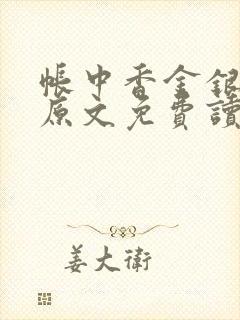 帳中香金銀
原文免費讀
姜大衛